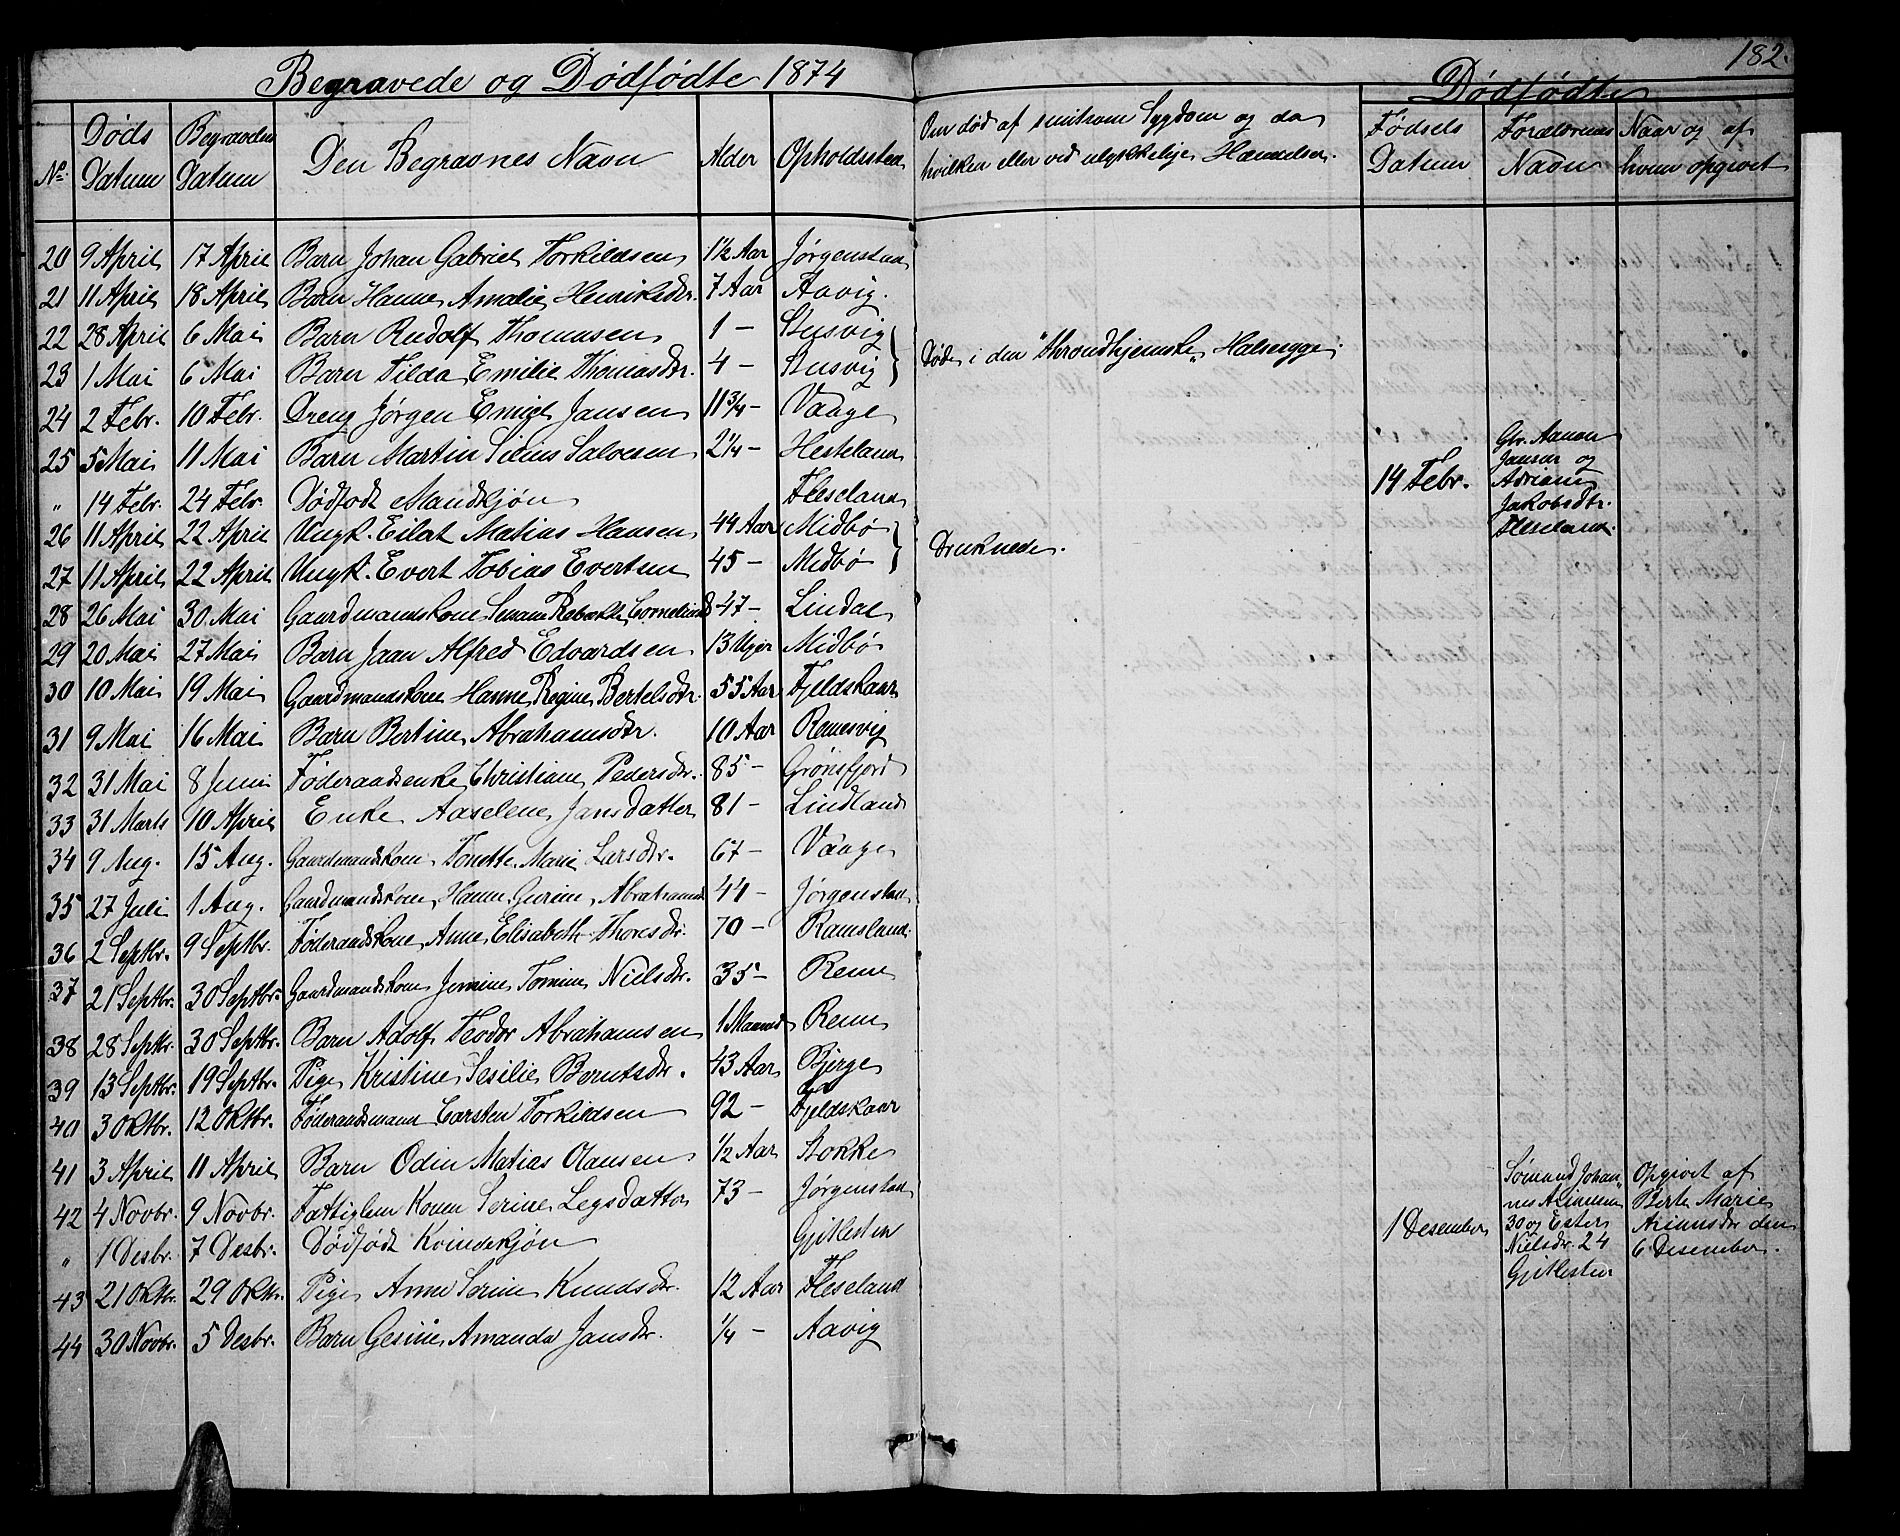 182.
Begravede og Dødfødte 1874
Dødfødte
No. Døds Datum Begravelses Datum Den Begravnes Navn Alder Opholdssted Om død af smitsom Sygdom og da hvilken eller ved ulykkelige Hændelser. Fødsels Datum Forældrenes Navn Naar og af hvem opgivet
20 9 April 17 April Barn Johan Gabriel Torkildsen 1½ Aar Jørgenstad
21 11 April 18 April Barn Hanne Amalie Henriksdtr. 7 Aar Aavig.
22 28 April 6 Mai Barn Rudolf Thomasen 1 - Stusvig
23 1 Mai 6 Mai Barn Tilda Emilie Thomasdtr. 4 - Stusvig } Døde i den "throndhjemske" Halssyge.
24 2 Febr. 10 Febr. Dreng Jørgen Emiel Jansen 11 3/4 - Vaage
25 5 Mai 11 Mai Barn Martin Silius Salvesen 2¼ - Hesteland
" 14 Febr. 24 Febr. Dødfødt Mandkjøn Fleseland 14 Febr. Gbr. Aanon Jansen og Adriane Jakobsdtr. Fleseland.
26 11 April 22 April Ungk. Eilert Matias Hansen 44 Aar Midbø
27 11 April 22 April Ungk. Evert Tobias Evertsen 45 - Midbø } Druknede.
28 26 Mai 30 Mai Gaardmandskone Rebekke 47 - Lindal
29 20 Mai 27 Mai Barn Jaan Alfred Edvardsen 13 Uger Midbø
30 10 Mai 19 Mai Gaardmandskone Hanne Regine Bertelsdtr. 55 Aar Fjeldskaar
31 9 Mai 16 Mai Barn Bertine Abrahamsdtr. 10 Aar Remesvig
32 31 Mai 8 Juni Føderaadsenke Christiane Pedersdtr. 85 - Grønsfjord
33 31 Marts 10 April Enke Aaselene Jansdatter 81 - Lindland
34 9 Aug. 15 Aug. Gaardmandskone Tonette Marie Larsdtr. 67 - Vaage
35 27 Juli 1 Aug. Gaardmandskone Hanne Gurine Abrahamsd 44 - Jørgenstad
36 2 Septbr. 9 Septbr. Føderaadskone Anne Elisabeth Thoresdr. 70 - Ramsland.
37 21 Septbr. 30 Septbr. Gaardmandskone Jensine Tomine Nielsdr. 35 - Renn
38 28 Septbr. 30 Septbr. Barn Adolf Teodor Abrahamsen 1 Maaned Renn
39 13 Septbr. 19 Septbr. Pige Kristine Sesilie Berntsdr. 43 Aar Bjerge
40 3 Oktbr. 12 Oktbr. Føderaadsmand Carsten Torkildsen 92 - Fjeldskaar
41 3 April 11 April Barn Odin Matias Olausen ½ Aar Stokke
42 4 Novbr. 9 Novbr. Fattiglem Konen Serine Legsdatter 73 - Jørgenstad
" 1 Desbr. 7 Desbr. Dødfødt Kvindekjøn Gjitlesten 1 Desember Sømand Johannes Asimsen 30 og Ester Nielsdr. 24 Gjitlesten Opgivet af Berte Marie Asimsdr den 6 Desember.
43 21 Oktbr. 29 Oktbr. Pige Anne Serine Knudsdr. 12 Aar Fleseland
44 30 Novbr. 5 Desbr. Barn Gesine Amanda Jansdr. ¼ - Aavig